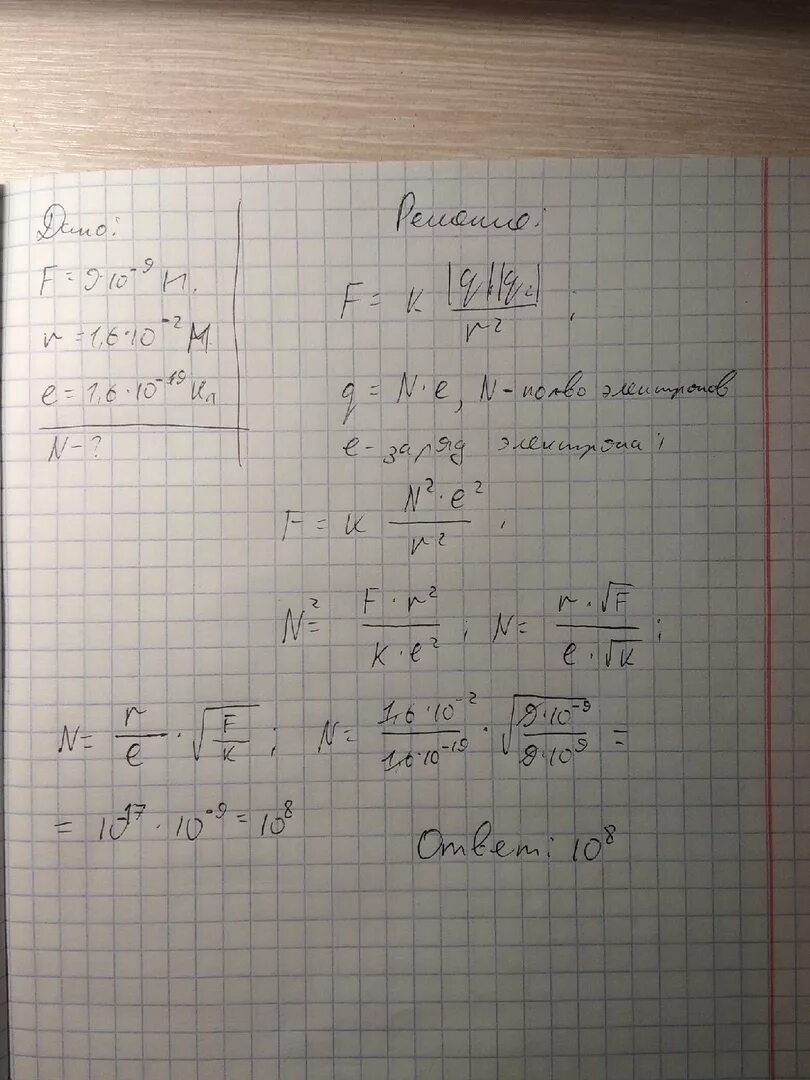 Дано:
F = 9·10⁻⁹ Н.
r = 1,6·10⁻² М
e = 1,6·10⁻¹⁹ Кл
N - ?
Решение:
F = k |q₁||q₂| / r² ;
q = N·e, N - кол-во электронов
e - заряд электрона;
F = k N²·e² / r² ;
N² = F·r² / k·e² ; N = r·√F / e·√k ;
N = r/e · √(F/k) ; N = 1,6·10⁻² / 1,6·10⁻¹⁹ · √(9·10⁻⁹ / 9·10⁹) =
= 10¹⁷ · 10⁻⁹ = 10⁸
Ответ: 10⁸